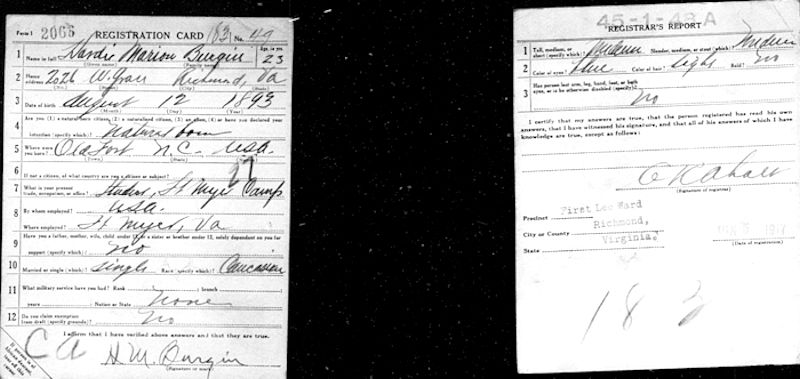 Form 1 2066 REGISTRATION CARD 163 No. 49
1 Name in full Hardie Marion Burgin Age, in yrs. 23
(Given name) (Family name)
2 Home address 2026 W. Grace Richmond, Va
(No.) (Street) (City) (State)
3 Date of birth August 12 1893
(Month) (Day) (Year)
4 Are you (1) a natural-born citizen, (2) a naturalized citizen, (3) an alien, (4) or have you declared your
intention (specify which)? Natural born
5 Where were you born? Old Fort N.C. USA.
(Town) (State) (Nation)
6 If not a citizen, of what country are you a citizen or subject?
7 What is your present trade, occupation, or office? Student, Ft Myer Camp
8 By whom employed? U.S.A.
Where employed? Ft Myer, Va
9 Have you a father, mother, wife, child under 12, or a sister or brother under 12, solely dependent on you for
support (specify which)? No
10 Married or single (which)? Single Race (specify which)? Caucasian
11 What military service have you had? Rank ; branch
years ; Nation or State None
12 Do you claim exemption from draft (specify grounds)? No
I affirm that I have verified above answers and that they are true.
C A H. M. Burgin
(Signature or mark)
If person is of African descent, tear off this corner.
45-1-48 A
REGISTRAR'S REPORT
1 Tall, medium, or short (specify which)? Medium Slender, medium, or stout (which)? Medium
2 Color of eyes? Blue Color of hair? Light Bald? No
3 Has person lost arm, leg, hand, foot, or both eyes, or is he otherwise disabled (specify)?
No
I certify that my answers are true, that the person registered has read his own
answers, that I have witnessed his signature, and that all of his answers of which I have
knowledge are true, except as follows:
(Signature of registrar)
Precinct First Lee Ward
City or County Richmond,
State Virginia.
JUN 5 1917
(Date of registration)